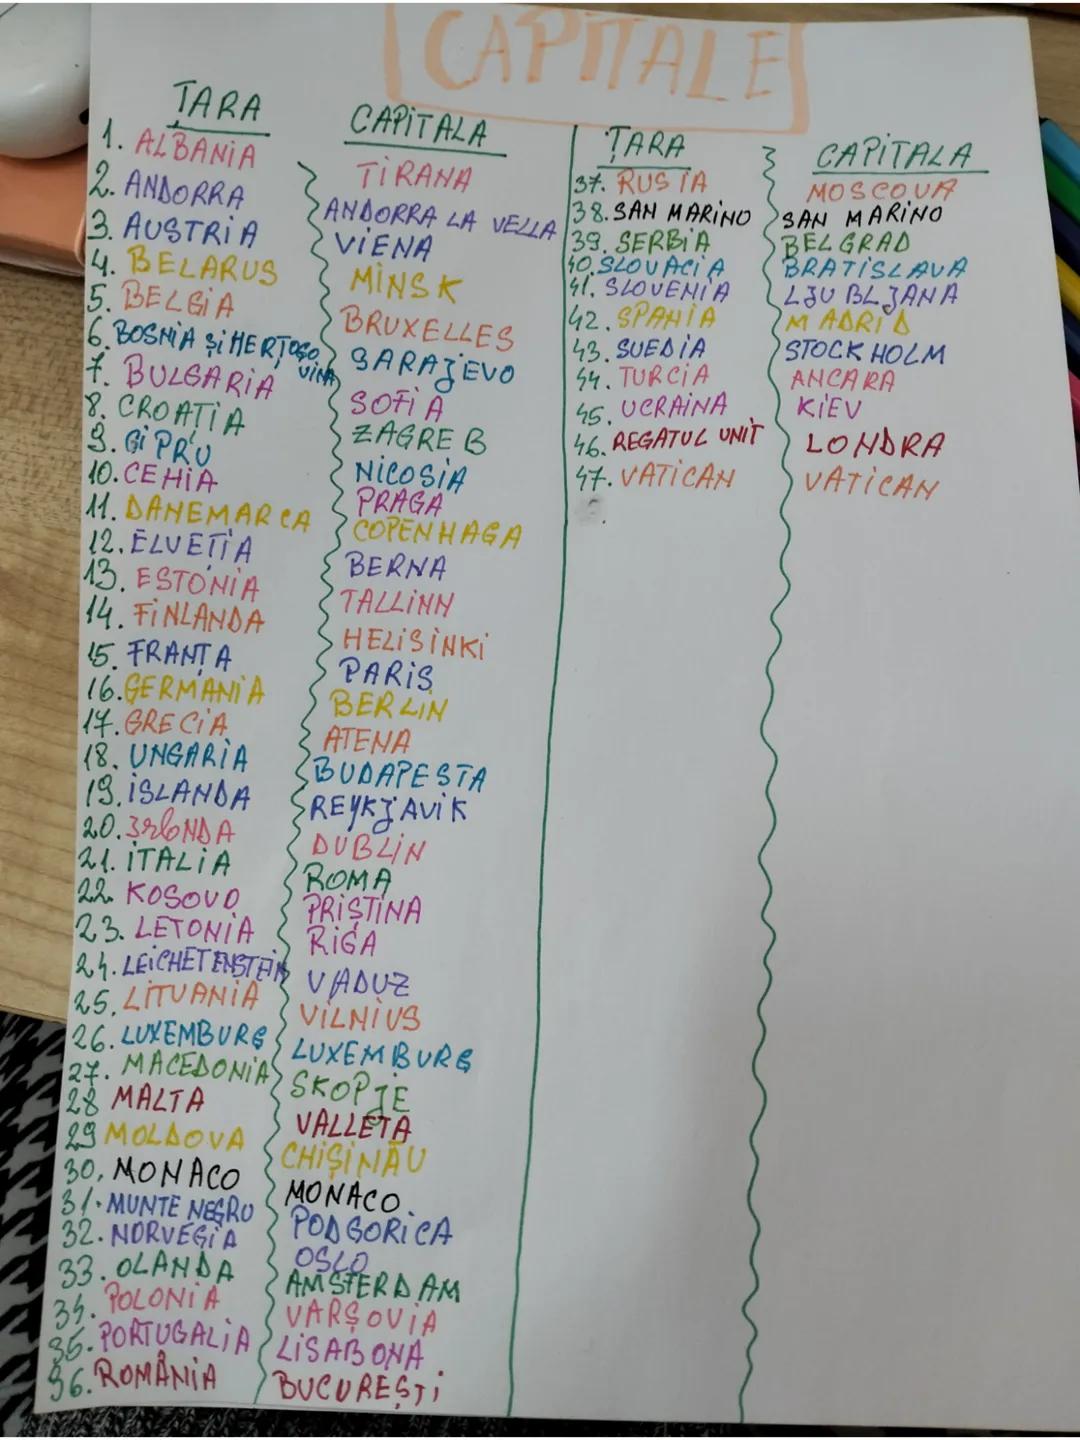 CAPITALE
ȚARA CAPITALA
1. ALBANIA TIRANA
2. ANDORRA ANDORRA LA VELLA
3. AUSTRIA VIENA
4. BELARUS MINSK
5. BELGIA BRUXELLES
6. BOSNIA ȘI HERȚOGOVINA SARAJEVO
7. BULGARIA SOFIA
8. CROAȚIA ZAGREB
9. CIPRU NICOSIA
10. CEHIA PRAGA
11. DANEMARCA COPENHAGA
12. ELVEȚIA BERNA
13. ESTONIA TALLINN
14. FINLANDA HELISINKI
15. FRANȚA PARIS
16. GERMANIA BERLIN
17. GRECIA ATENA
18. UNGARIA BUDAPESTA
19. ISLANDA REYKJAVIK
20. DUBLIN
21. ITALIA ROMA
22. KOSOVO PRIȘTINA
23. LETONIA RIGA
24. LEICHETENSTEIN VADUZ
25. LITUANIA VILNIUS
26. LUXEMBURG LUXEMBURG
27. MACEDONIA SKOPJE
28 MALTA VALLETA
29 MOLDOVA CHIȘINĂU
30. MONACO MONACO
31. MUNTE NEGRU PODGORICA
32. NORVEGIA OSLO
33. OLANDA AMSTERDAM
34. POLONIA VARȘOVIA
35. PORTUGALIA LISABONA
36. ROMÂNIA BUCUREȘTI
ȚARA CAPITALA
37. RUSIA MOSCOVA
38. SAN MARINO SAN MARINO
39. SERBIA BELGRAD
40. SLOVACIA BRATISLAVA
41. SLOVENIA LJUBLJANA
42. SPANIA MADRID
43. SUEDIA STOCKHOLM
44. TURCIA ANCARA
45. UCRAINA KIEV
46. REGATUL UNIT LONDRA
47. VATICAN VATICAN